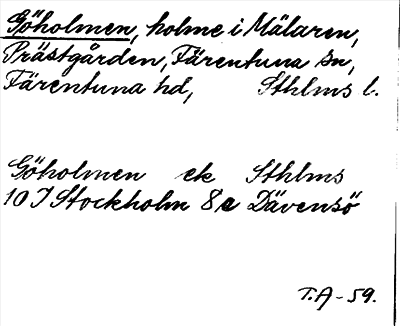 Göholmen, holme i Mälaren,
Prästgården, Färentuna sn,
Färentuna hd, Sthlms l.
Göholmen ek Sthlms
10 I Stockholm 8 e Dävensö
T.A-59.